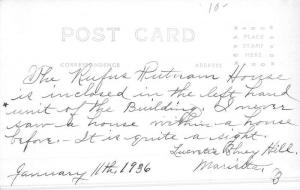 10-
POST CARD
PLACE
STAMP
HERE
CORRESPONDENCE
ADDRESS
The Rufus Putnam House
is inclosed in the left hand
unit of the Building. I never
saw a house within a house
before. - It is quite a sight.
Hill.
January 11th, 1936